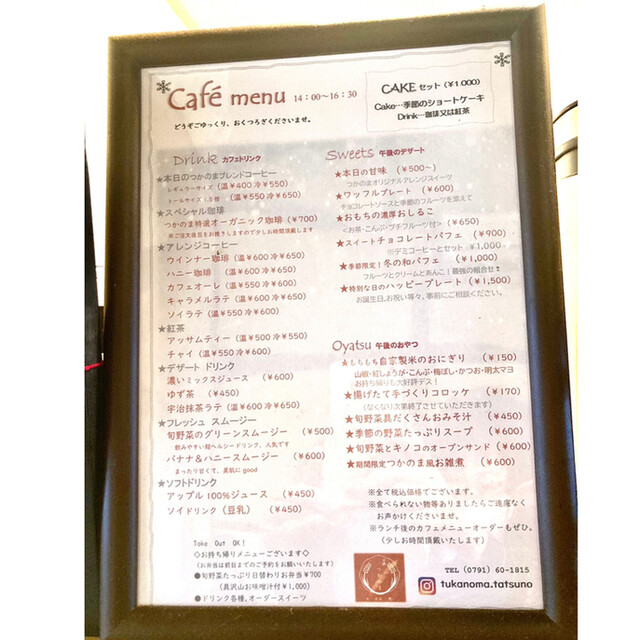 Café menu 14：00～16：30
どうぞごゆっくり、おくつろぎくださいませ。
CAKE セット（￥1,000）
Cake…季節のショートケーキ
Drink…珈琲又は紅茶
Drink カフェドリンク
★本日のつかのまブレンドコーヒー
レギュラーサイズ（温￥400 冷￥550）
トールサイズ 1.5倍（温￥550 冷￥650）
★スペシャル珈琲
つかのま特選オーガニック珈琲（￥700）
※ご注文後豆をお挽きしますので少しお時間頂戴します
★アレンジコーヒー
ウインナー珈琲（温￥600 冷￥650）
ハニー珈琲（温￥600 冷￥650）
カフェオーレ（温￥550 冷￥600）
キャラメルラテ（温￥600 冷￥650）
ソイラテ（温￥550 冷￥600）
★紅茶
アッサムティー（温￥500 冷￥550）
チャイ（温￥550 冷￥600）
★デザート ドリンク
濃いミックスジュース （￥600）
ゆず茶 （￥450）
宇治抹茶ラテ（温￥600 冷￥650）
★フレッシュ スムージー
旬野菜のグリーンスムージー （￥500）
飲みやすい超ヘルシードリンク、人気です
バナナ＆ハニースムージー （￥600）
まったり甘くて、美肌に good
★ソフトドリンク
アップル 100%ジュース （￥450）
ソイドリンク（豆乳） （￥450）
Take Out OK！
◇お持ち帰りメニューございます◇
（お弁当は前日までのご予約をお願いいたします）
●旬野菜たっぷり日替わりお弁当￥700
（具沢山お味噌汁付￥1,000）
●ドリンク各種、オーダースイーツ
Sweets 午後のデザート
★本日の甘味 （￥500～）
つかのまオリジナルアレンジスイーツ
★ワッフルプレート （￥600）
チョコレートソースと季節のフルーツを添えて
★おもちの濃厚おしるこ
＜お茶・こんぶ・プチフルーツ付＞（￥650）
★スイートチョコレートパフェ （￥900）
※デミコーヒーとセット ￥1,000
★季節限定！冬の和パフェ （￥1,000）
フルーツとクリームとあんこ！最強の組合せ❢
★特別な日のハッピープレート（￥1,500）
お誕生日、お祝い等々、事前にご相談ください。
Oyatsu 午後のおやつ
★もちもち自家製米のおにぎり （￥150）
山椒・紅しょうが・こんぶ・梅ぼし・かつお・明太マヨ
お持ち帰りも大好評デス！
★揚げたて手づくりコロッケ （￥170）
（なくなり次第終了させていただきます）
★旬野菜具だくさんおみそ汁 （￥450）
★季節の野菜たっぷりスープ （￥600）
★旬野菜とキノコのオープンサンド（￥600）
★期間限定つかのま風お雑煮 （￥600）
※全て税込価格でございます。
※食べられない物等ありましたらご遠慮なく
お声かけくださいませ。
※ランチ後のカフェメニューオーダーもぜひ。
（少しお時間頂戴いたします）
TEL（0791）60-1815
tukanoma.tatsuno